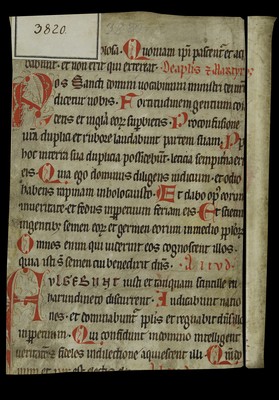 3820.
Quoniam ipsi pascent et ac
cubabunt et non erit qui exterreat. De aplis
Vos sancti domini vocabimini ministri
dicetur vobis. Fortitudinem gentium com
edetis et in gloria eorum superbietis. Pro confusione
duplici et rubore laudabunt partem suam. Propter
hoc in terra sua duplicia possidebunt leticia sempiterna erit
eis. Quia ego dominus diligens iudicium et odio
habens rapinam in holocausto. Et dabo opus eorum
in veritate et fedus perpetuum feriam eis. Et sciet
in gentibus semen eorum et germen eorum in medio populorum
Omnes enim qui viderint eos cognoscent illos
quia isti sunt semen cui benedixit dominus. Aliud
Fulgebunt iusti et tanquam scintille in
harundineto discurrent. Iudicabunt natio
nes et dominabuntur populis et regnabit dominus illorum
in perpetuum. Qui confidunt in domino intelligent
veritatem et fideles in dilectione acquiescent illi. Quoniam